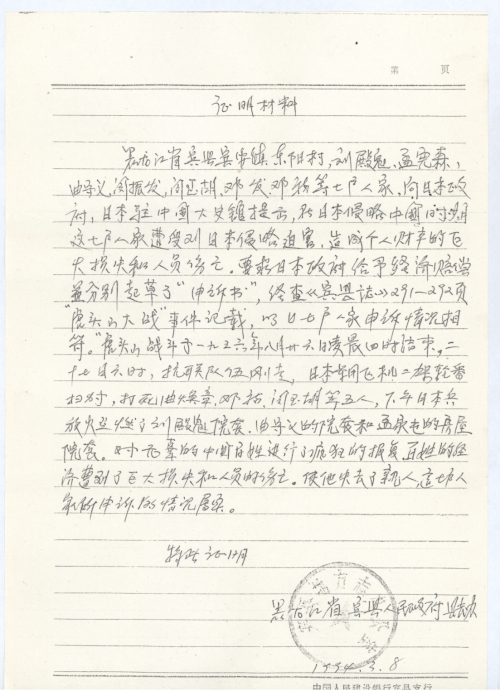 第 页
证明材料
黑龙江省宾县宾安镇东阳村，刘殿魁，孟宪森，
曲学义，闫振发，闫玉胡，邓发，邓 等七户人家，向日本政
府，日本驻中国大使馆提出，在日本侵略中国的时期
这七户人家遭受到日本侵略迫害，造成个人财产的巨
大损失和人员伤亡。要求日本政府给予经济赔偿
并分别起草了"申诉书"，经查《宾县志》291—292页
"虎头山大战"事件记载，以上七户人家申诉情况相
符。"虎头山战斗于一九三六年八月廿六日凌晨四时结束，二
十七日六时，抗联队伍刚走，日本军用飞机二架轮番
扫射，打死曲 章、邓 、闫玉胡等五人，下午日本兵
放火烧了刘殿魁院套、曲学义的院套和孟 的房屋
院套。对无辜的中国百姓进行了疯狂的报负，百姓的经
济遭到了巨大损失和人员的伤亡。使他失去了亲人，这七户人
家所申诉的情况属实。
特此证明
黑龙江省宾县人民政府县
1994.3.8
中国人民建设银行宾县支行